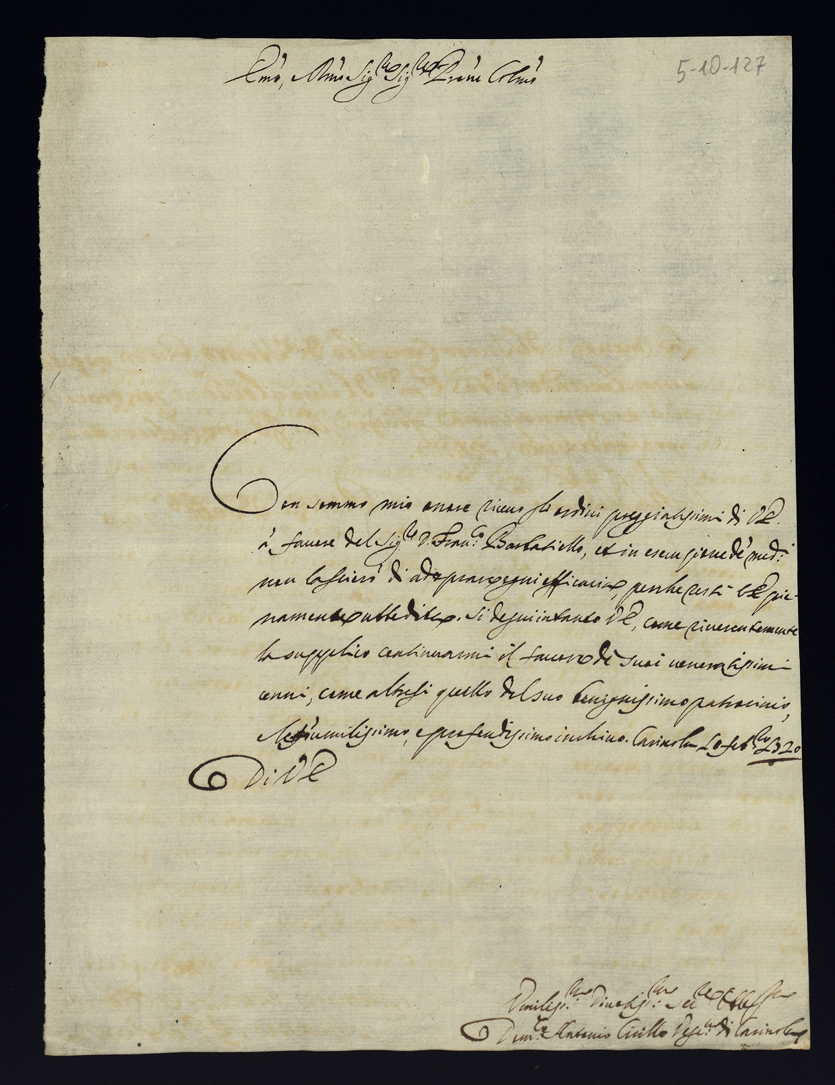 Emo, Rmo Sig.re Sig.re Prone Colmo
5-10-127
Con sommo mio onore ricevo gl'ordini preggiatissimi di V.E.
à favore del Sig.re D. Fran.co Barbatiello, et in esecuzione de' med.i
non lascierò di adoprar ogni efficacia, perche resti V.E. pie-
namente obbedita. Si degni intanto V.E., come riverentemente
la supplico continuarmi il favore de' suoi veneratissimi
cenni, come altresi quello del suo benignissimo patrocinio,
umilissimo, e profondissimo inchino. Carinola 10 feb.ro 1720
Di V.E.
Umiliss.mo Divotiss.mo
Antonio Cirillo Vesc.o di Carinola